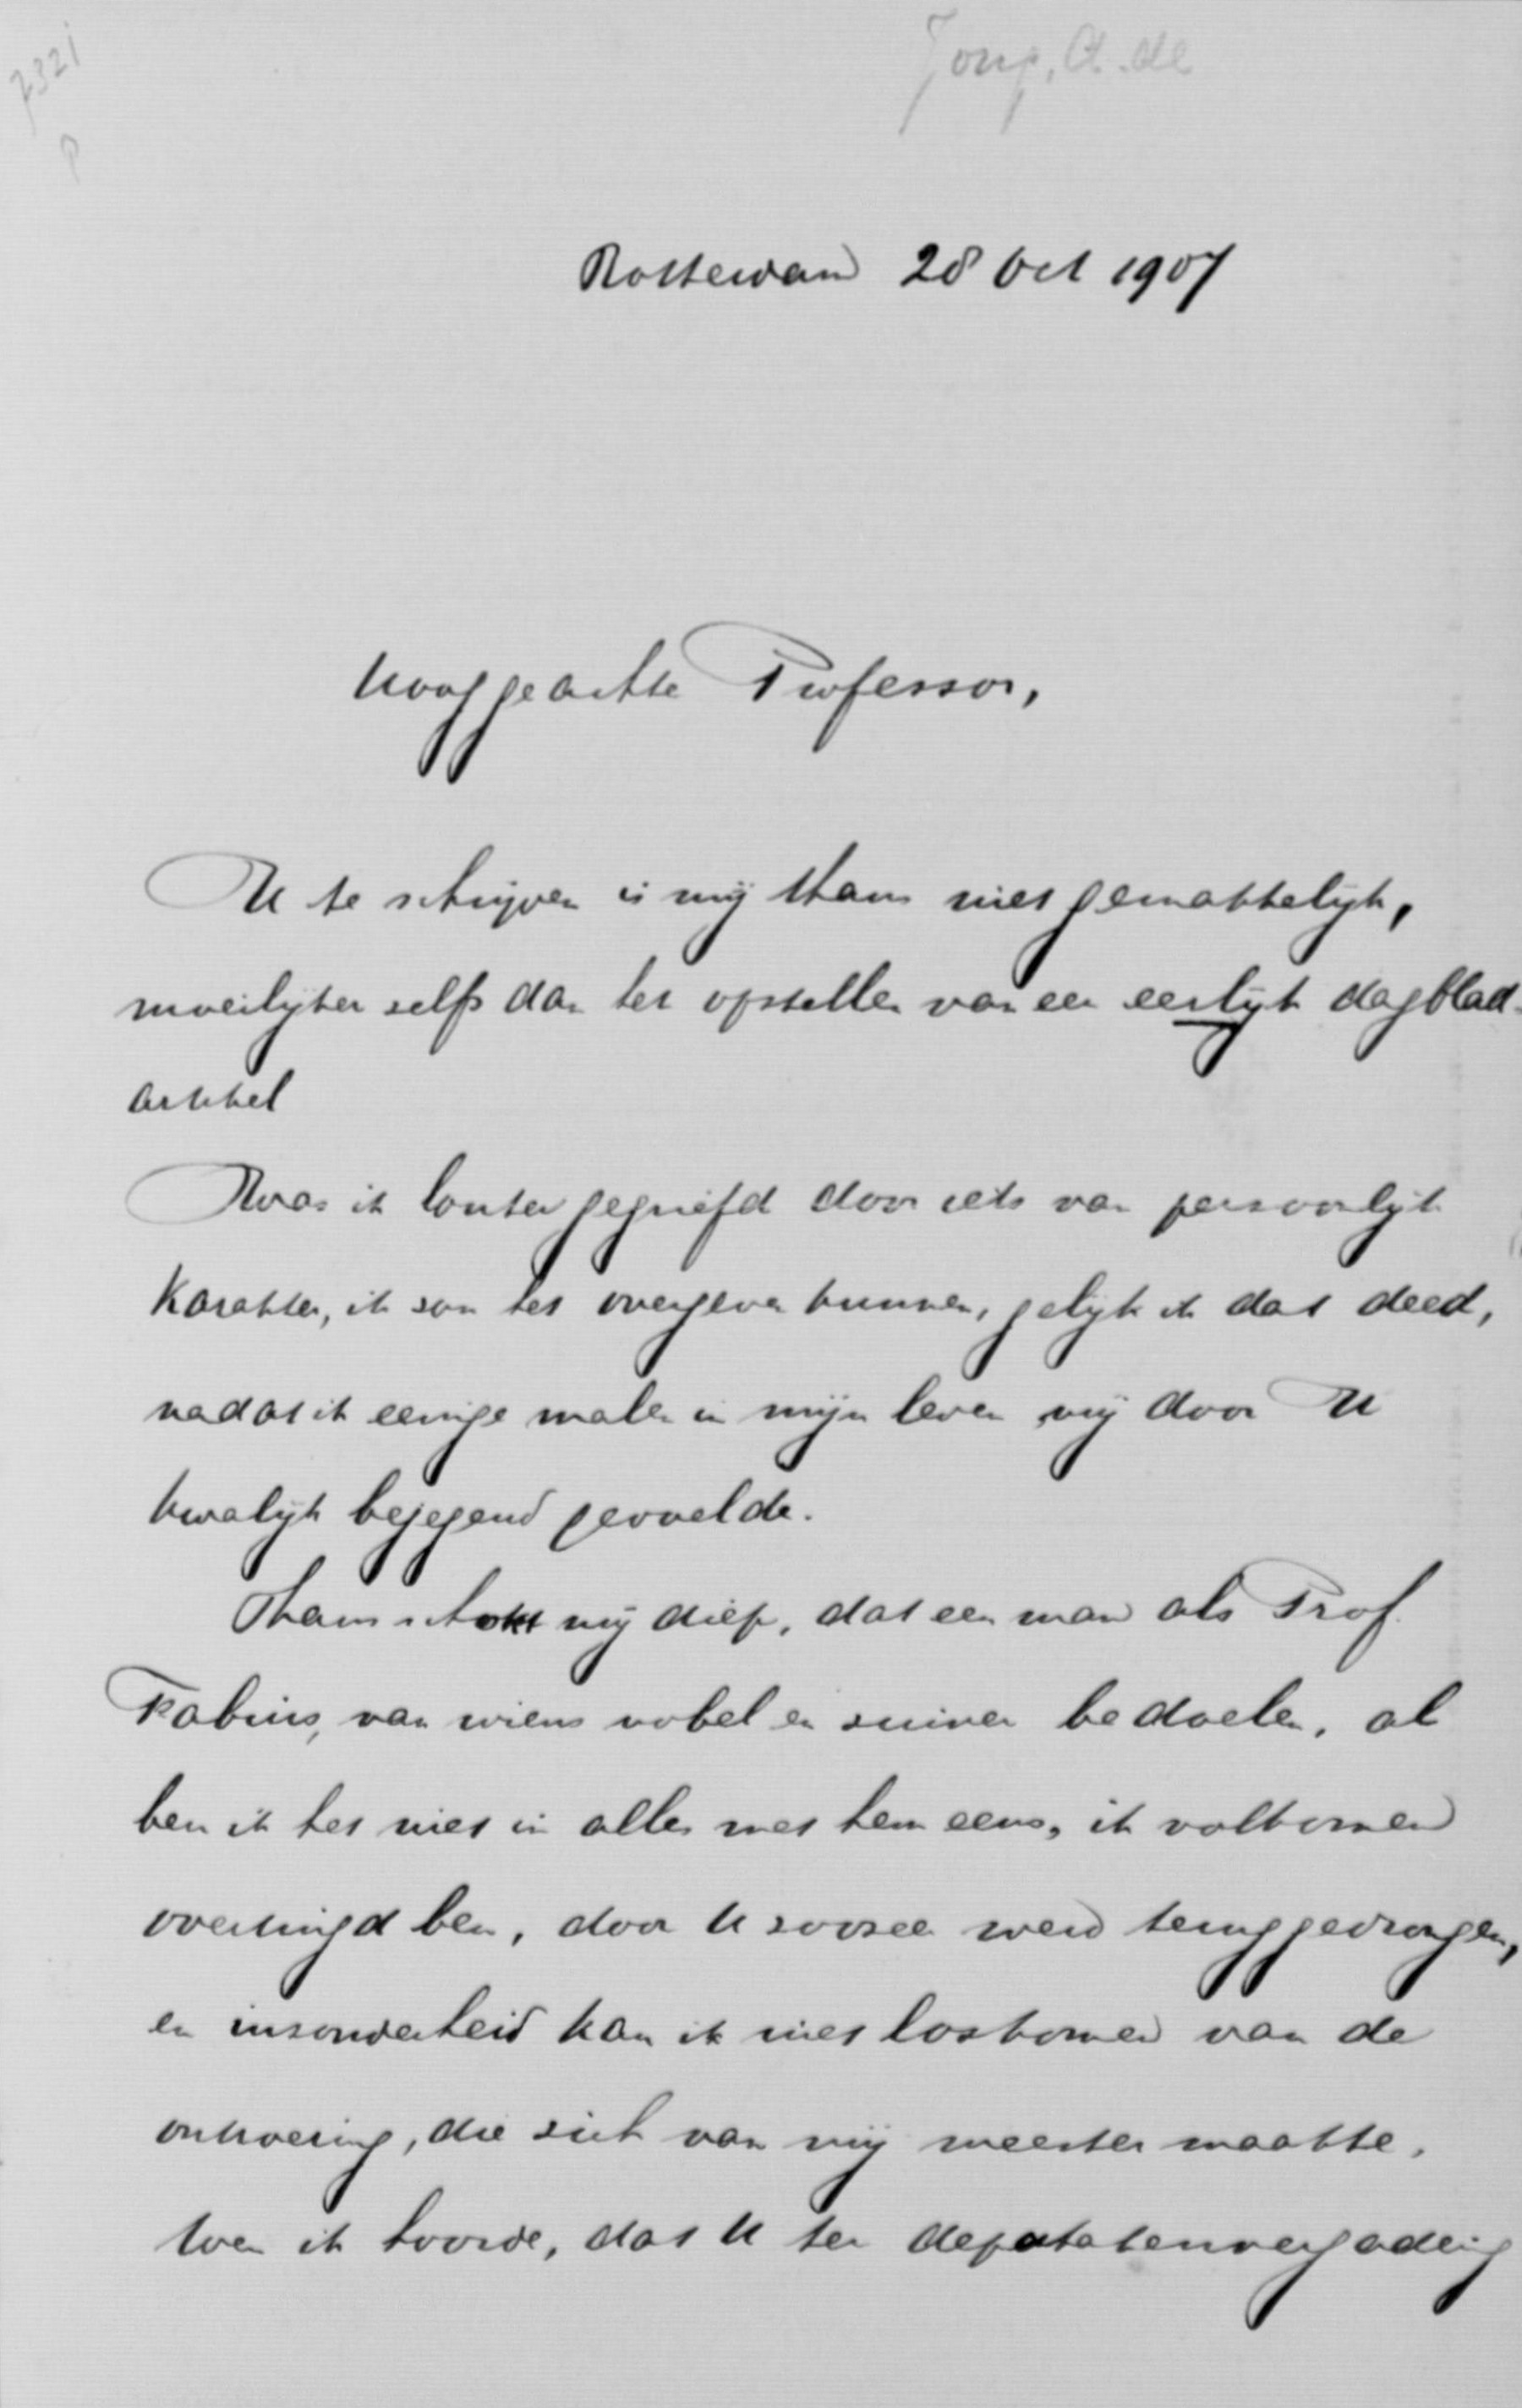 7321
P
Jong, A. de
Rotterdam 28 Oct 1907
Hooggeachte Professor,
U te schrijven is mij thans niet gemakkelijk,
moeilijker zelfs dan het opstellen van een eerlijk dagblad-
artikel
Was ik louter gegriefd door iets van persoonlijk
karakter, ik zou het overgeven kunnen, gelijk ik dat deed,
nadat ik eenige malen in mijn leven mij door U
kwalijk bejegend gevoelde.
Thans schokt mij diep, dat een man als Prof.
Fabius, van wiens nobel en zuiver bedoelen, al
ben ik het niet in alles met hem eens, ik volkomen
overtuigd ben, door U zoozeer werd teruggedrongen,
en inzonderheid kan ik niet loskomen van de
ontroering, die zich van mij meester maakte,
toen ik hoorde, dat U ter deputatenvergadering